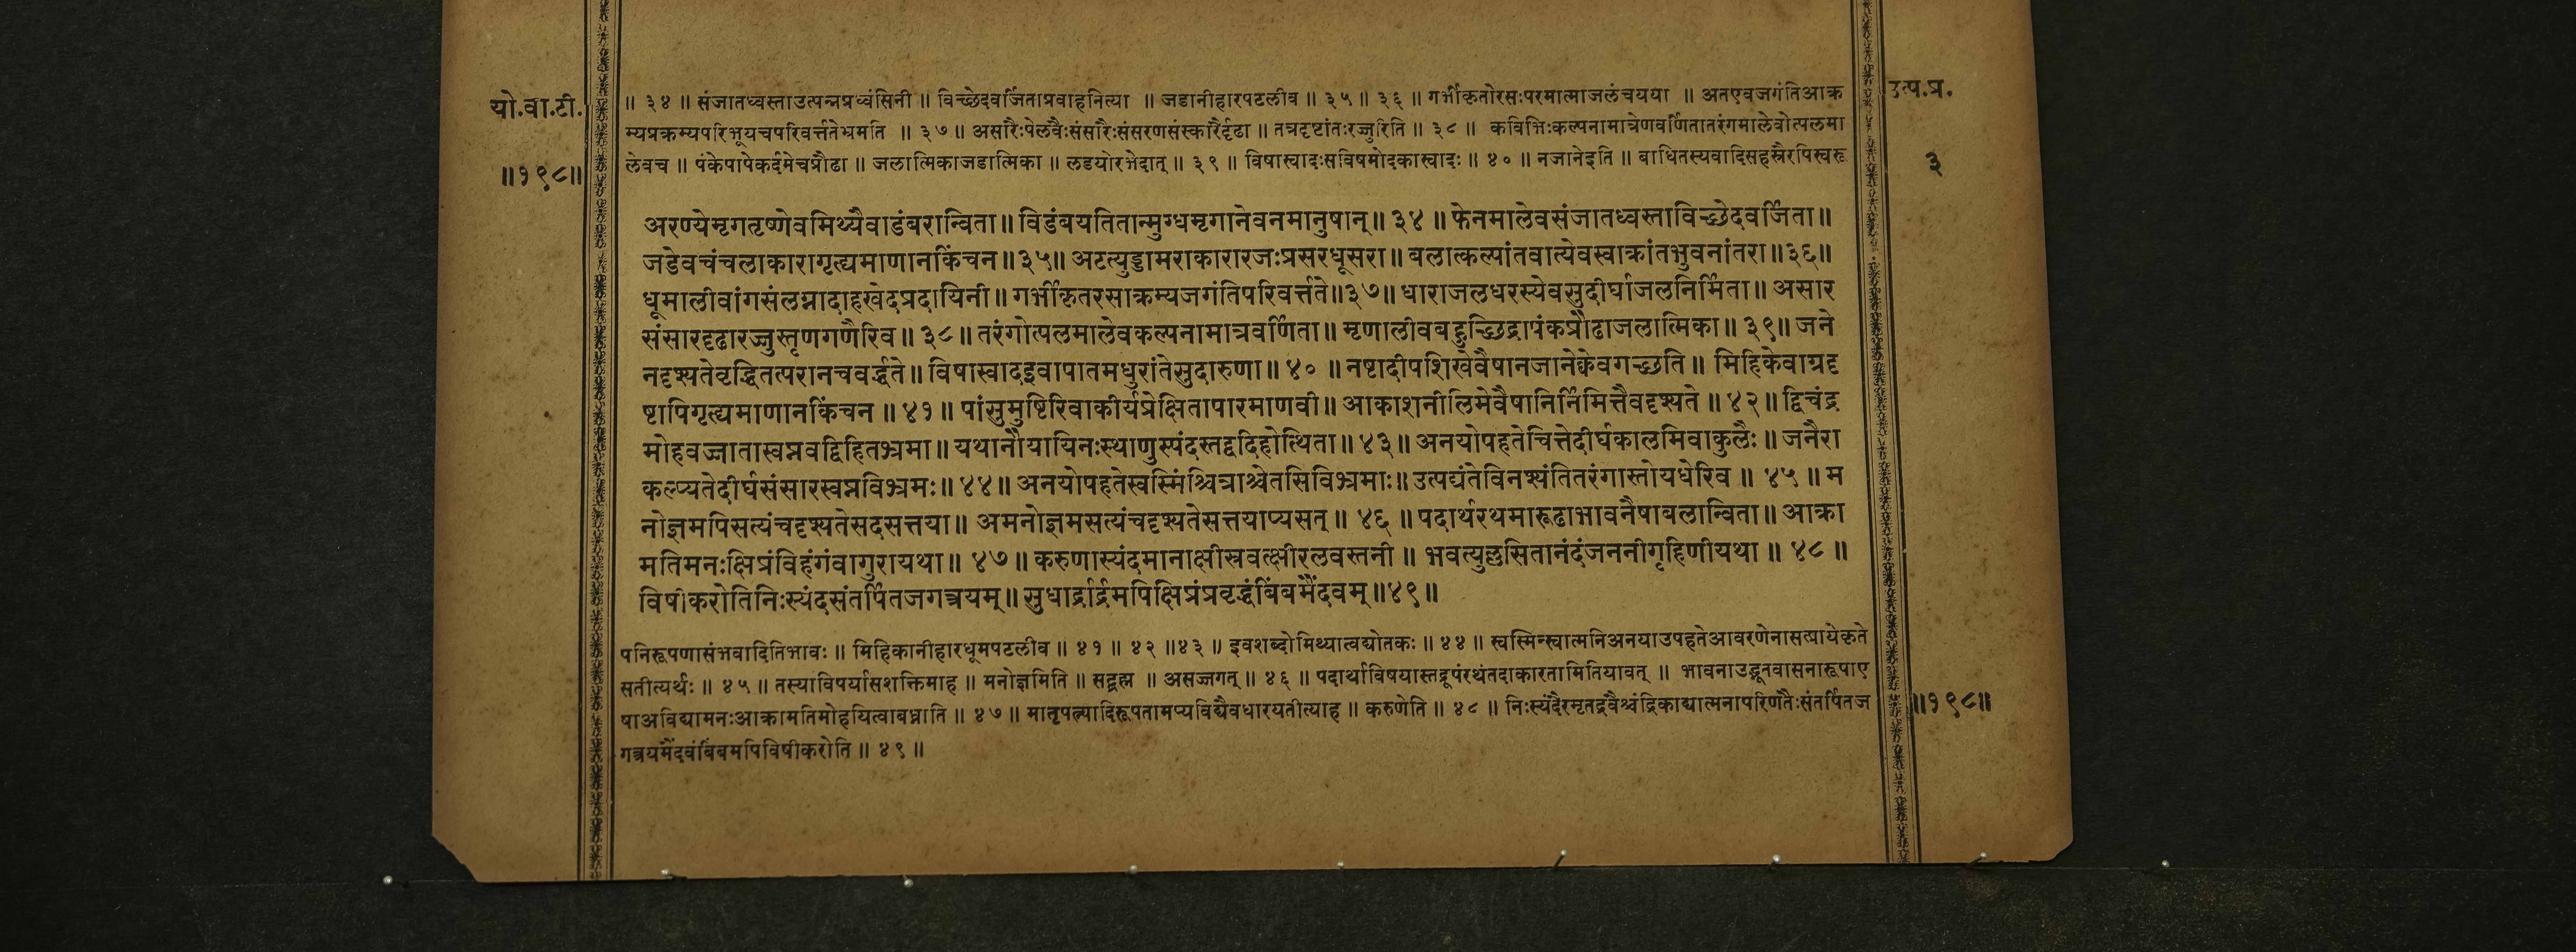 यो.वा.टी.
॥१९८॥
उत्प.प्र.
३
॥ ३४ ॥ संजातध्वस्ताउत्पन्नप्रध्वंसिनी ॥ विच्छेदवर्जिताप्रवाहनित्या ॥ जडानीहारपटलीव ॥ ३५ ॥ ३६ ॥ गर्भीकृतोरसःपरमात्माजलंचयया ॥ अतएवजगंतिआक्र
म्यप्रक्रम्यपरिभूयचपरिवर्त्ततेभ्रमति ॥ ३७ ॥ असारैःपेलवैःसंसारैःसंसरणसंस्कारैर्दृढा ॥ तत्रदृष्टांतःरज्जुरिति ॥ ३८ ॥ कविभिःकल्पनामात्रेणवर्णितातरंगमालेवोत्पलमा
लेवच ॥ पंकेपापेकर्दमेचप्रौढा ॥ जलात्मिकाजडात्मिका ॥ लडयोरभेदात् ॥ ३९ ॥ विषास्वादःसविषमोदकास्वादः ॥ ४० ॥ नजानेइति ॥ बाधितस्यवादिसहस्रैरपिस्वरू
अरण्येमृगतृष्णेवमिथ्यैवाडंबरान्विता॥ विडंबयतितान्मुग्धमृगानेवनमानुषान्॥ ३४ ॥ फेनमालेवसंजातध्वस्ताविच्छेदवर्जिता॥
जडेवचंचलाकारागृत्द्यमाणानकिंचन॥३५॥ अटत्युड्डामराकारारजःप्रसरधूसरा॥ बलात्कल्पांतवात्येवस्वाक्रांतभुवनांतरा॥३६॥
धूमालीवांगसंलग्नादाहखेदप्रदायिनी॥ गर्भीकृतरसाक्रम्यजगंतिपरिवर्त्तते॥३७॥ धाराजलधरस्येवसुदीर्घाजलनिर्मिता॥ असार
संसारदृढारज्जुस्तृणगणैरिव॥ ३८॥ तरंगोत्पलमालेवकल्पनामात्रवर्णिता॥ मृणालीवबहुच्छिद्रापंकप्रौढाजलात्मिका॥ ३९॥ जने
नदृश्यतेवृद्धितत्परानचवर्द्धते॥ विषास्वादइवापातमधुरांतेसुदारुणा॥ ४० ॥ नष्टादीपशिखेवैषानजानेक्वेवगच्छति॥ मिहिकेवाग्रदृ
ष्टापिगृत्द्यमाणानकिंचन ॥ ४१॥ पांसुमुष्टिरिवाकीर्यप्रेक्षितापारमाणवी॥ आकाशनीलिमेवैषानिर्निमित्तैवदृश्यते ॥ ४२॥ द्विचंद्र
मोहवज्जातास्वप्नवद्विहितभ्रमा॥ यथानौयायिनःस्थाणुस्पंदस्तद्वदिहोत्थिता॥ ४३॥ अनयोपहतेचित्तेदीर्घकालमिवाकुलैः॥ जनैरा
कल्प्यतेदीर्घसंसारस्वप्नविभ्रमः॥ ४४॥ अनयोपहतेस्वस्मिंश्चित्राश्चेतसिविभ्रमाः॥ उत्पद्यंतेविनश्यंतितरंगास्तोयधेरिव ॥ ४५ ॥ म
नोज्ञमपिसत्यंचदृश्यतेसदसत्तया॥ अमनोज्ञमसत्यंचदृश्यतेसत्तयाप्यसत् ॥ ४६ ॥ पदार्थरथमारूढाभावनैषाबलान्विता॥ आक्रा
मतिमनःक्षिप्रंविहंगंवागुरायथा॥ ४७॥ करुणास्यंदमानाक्षीस्रवत्क्षीरलवस्तनी ॥ भवत्युल्लसितानंदंजननीगृहिणीयथा ॥ ४८ ॥
विषीकरोतिनिःस्यंदसंतर्पितजगत्रयम्॥ सुधार्द्रार्द्रमपिक्षिप्रंप्रवृद्धंबिंबमैंदवम्॥४९॥
पनिरूपणासंभवादितिभावः ॥ मिहिकानीहारधूमपटलीव ॥ ४१ ॥ ४२ ॥४३ ॥ इवशब्दोमिथ्यात्वद्योतकः ॥ ४४ ॥ स्वस्मिन्स्वात्मनिअनयाउपहतेआवरणेनासत्प्रायेकृते
सतीत्यर्थः ॥ ४५ ॥ तस्याविपर्यासशक्तिमाह ॥ मनोज्ञमिति ॥ सद्ब्रह्म ॥ असज्जगत् ॥ ४६ ॥ पदार्थाविषयास्तद्रूपंरथंतदाकारतामितियावत् ॥ भावनाउद्भूतवासनारूपाए
षाअविद्यामनःआक्रामतिमोहयित्वाबध्नाति ॥ ४७ ॥ मातृपत्न्यादिरूपतामप्यविद्यैवधारयतीत्याह ॥ करुणेति ॥ ४८ ॥ निःस्यंदैरमृतद्रवैश्चंद्रिकाद्यात्मनापरिणतैःसंतर्पितज
गत्रयमैंदवंबिंबमपिविषीकरोति ॥ ४९ ॥
॥१९८॥